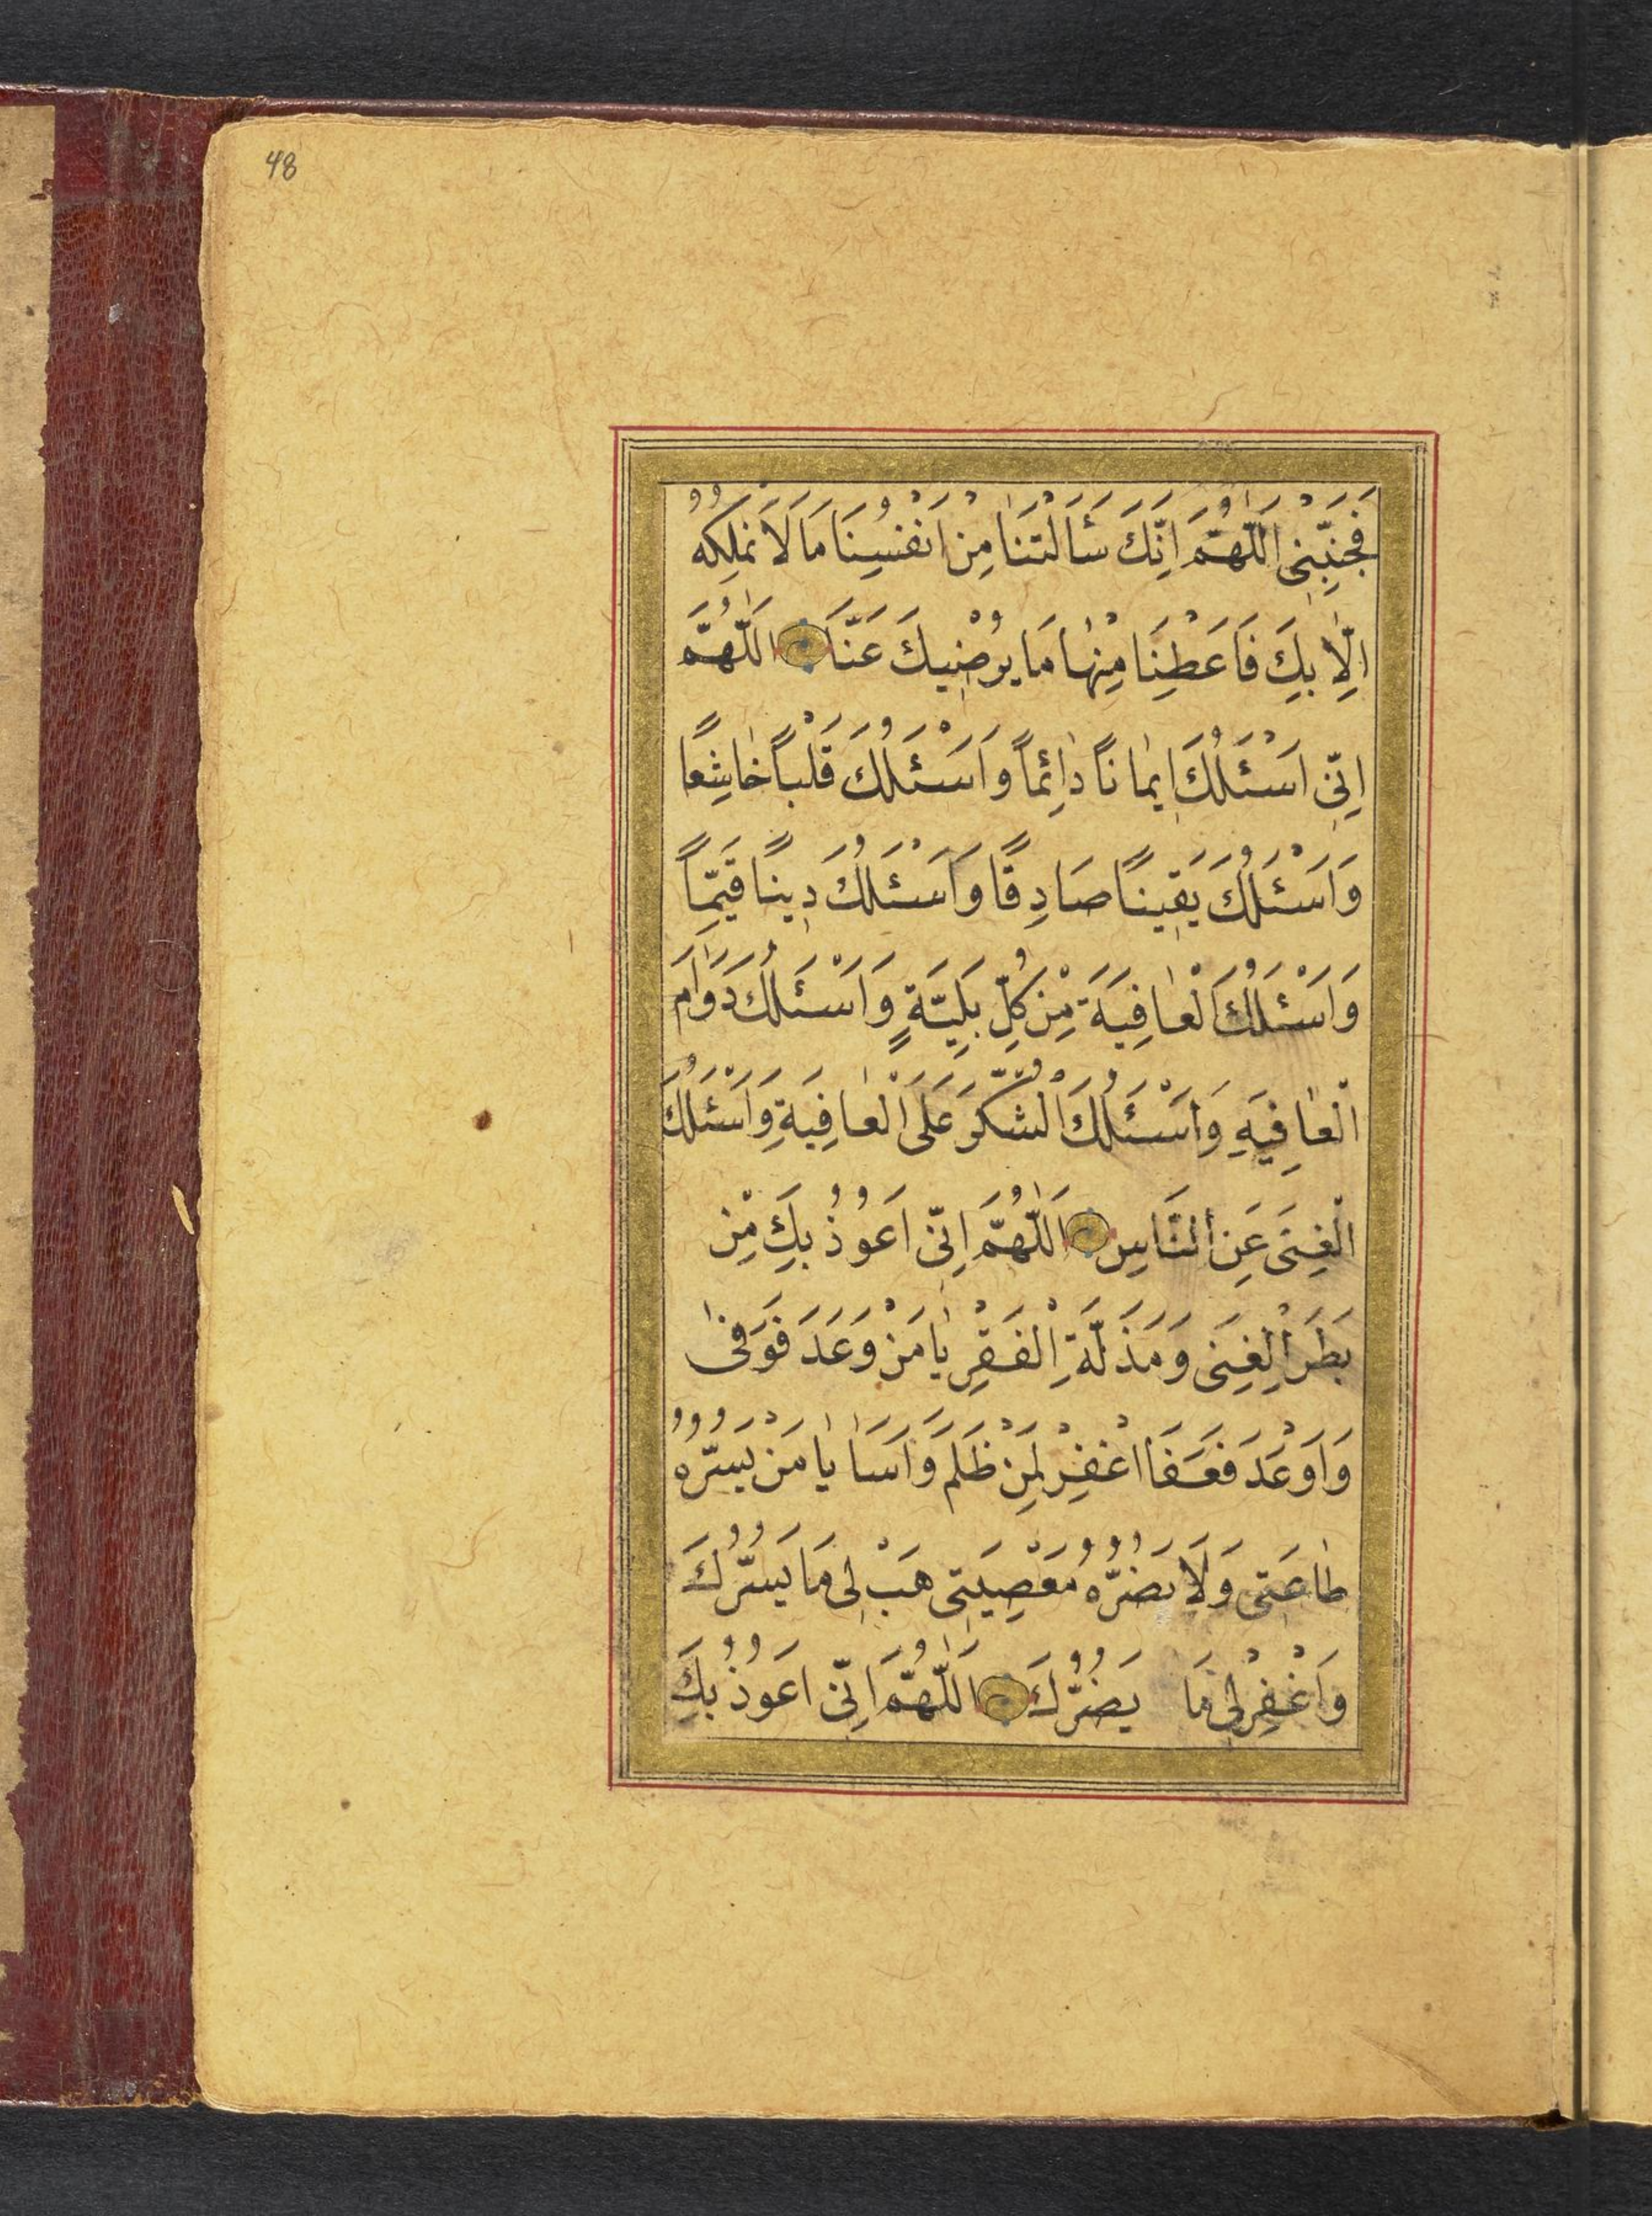 48
فَجَنِّبْنِى اَللّٰهُمَّ اِنَّكَ سَئَالْتَنٰا مِنْ اَنْفُسِنَا مَا لَا نَمْلِكُهُ
اِلّٰا بِكَ فَاَعْطِنَا مِنْهٰا مَا يُرْضٖيكَ عَنَّا اَللّٰهُمَّ
اِنّٖى اَسْئَلُكَ اٖيمٰانًا دٰائِمًا وَاَسْئَلُكَ قَلْبًا خٰاشِعًا
وَاَسْئَلُكَ يَقٖينًا صَادِقًا وَاَسْئَلُكَ دٖينًا قَيِّمًا
وَاَسْئَلُكَ الْعٰافِيَةَ مِنْ كُلِّ بَلِيَّةٍ وَاَسْئَلُكَ دَوٰامَ
الْعٰافِيَهِ وَاَسْئَلُكَ الْشُّكْرَ عَلَى الْعٰافِيَةِ وَاَسْئَلُكَ
الْغِنَى عَنِ النَّاسِ اَللّٰهُمَّ اِنّٖى اَعُوذُ بِكَ مِنْ
بَطَرِ الْغِنَى وَمَذَلَّةِ الْفَقْرِ يٰا مَنْ وَعَدَ فَوَفىٰ
وَاَوْعَدَ فَعَفَا اغْفِرْ لِمَنْ ظَلَمَ وَاَسَاٰ يٰا مَنْ يَسُرُّهُ
طٰاعَتٖى وَلَا يَضُرُّهُ مَعْصِيَتٖى هَبْ لٖى مَا يَسُرُّكَ
وَاغْفِرْ لٖى مَا يَضُرُّكَ اَللّٰهُمَّ اِنّٖى اَعُوذُ بِكَ